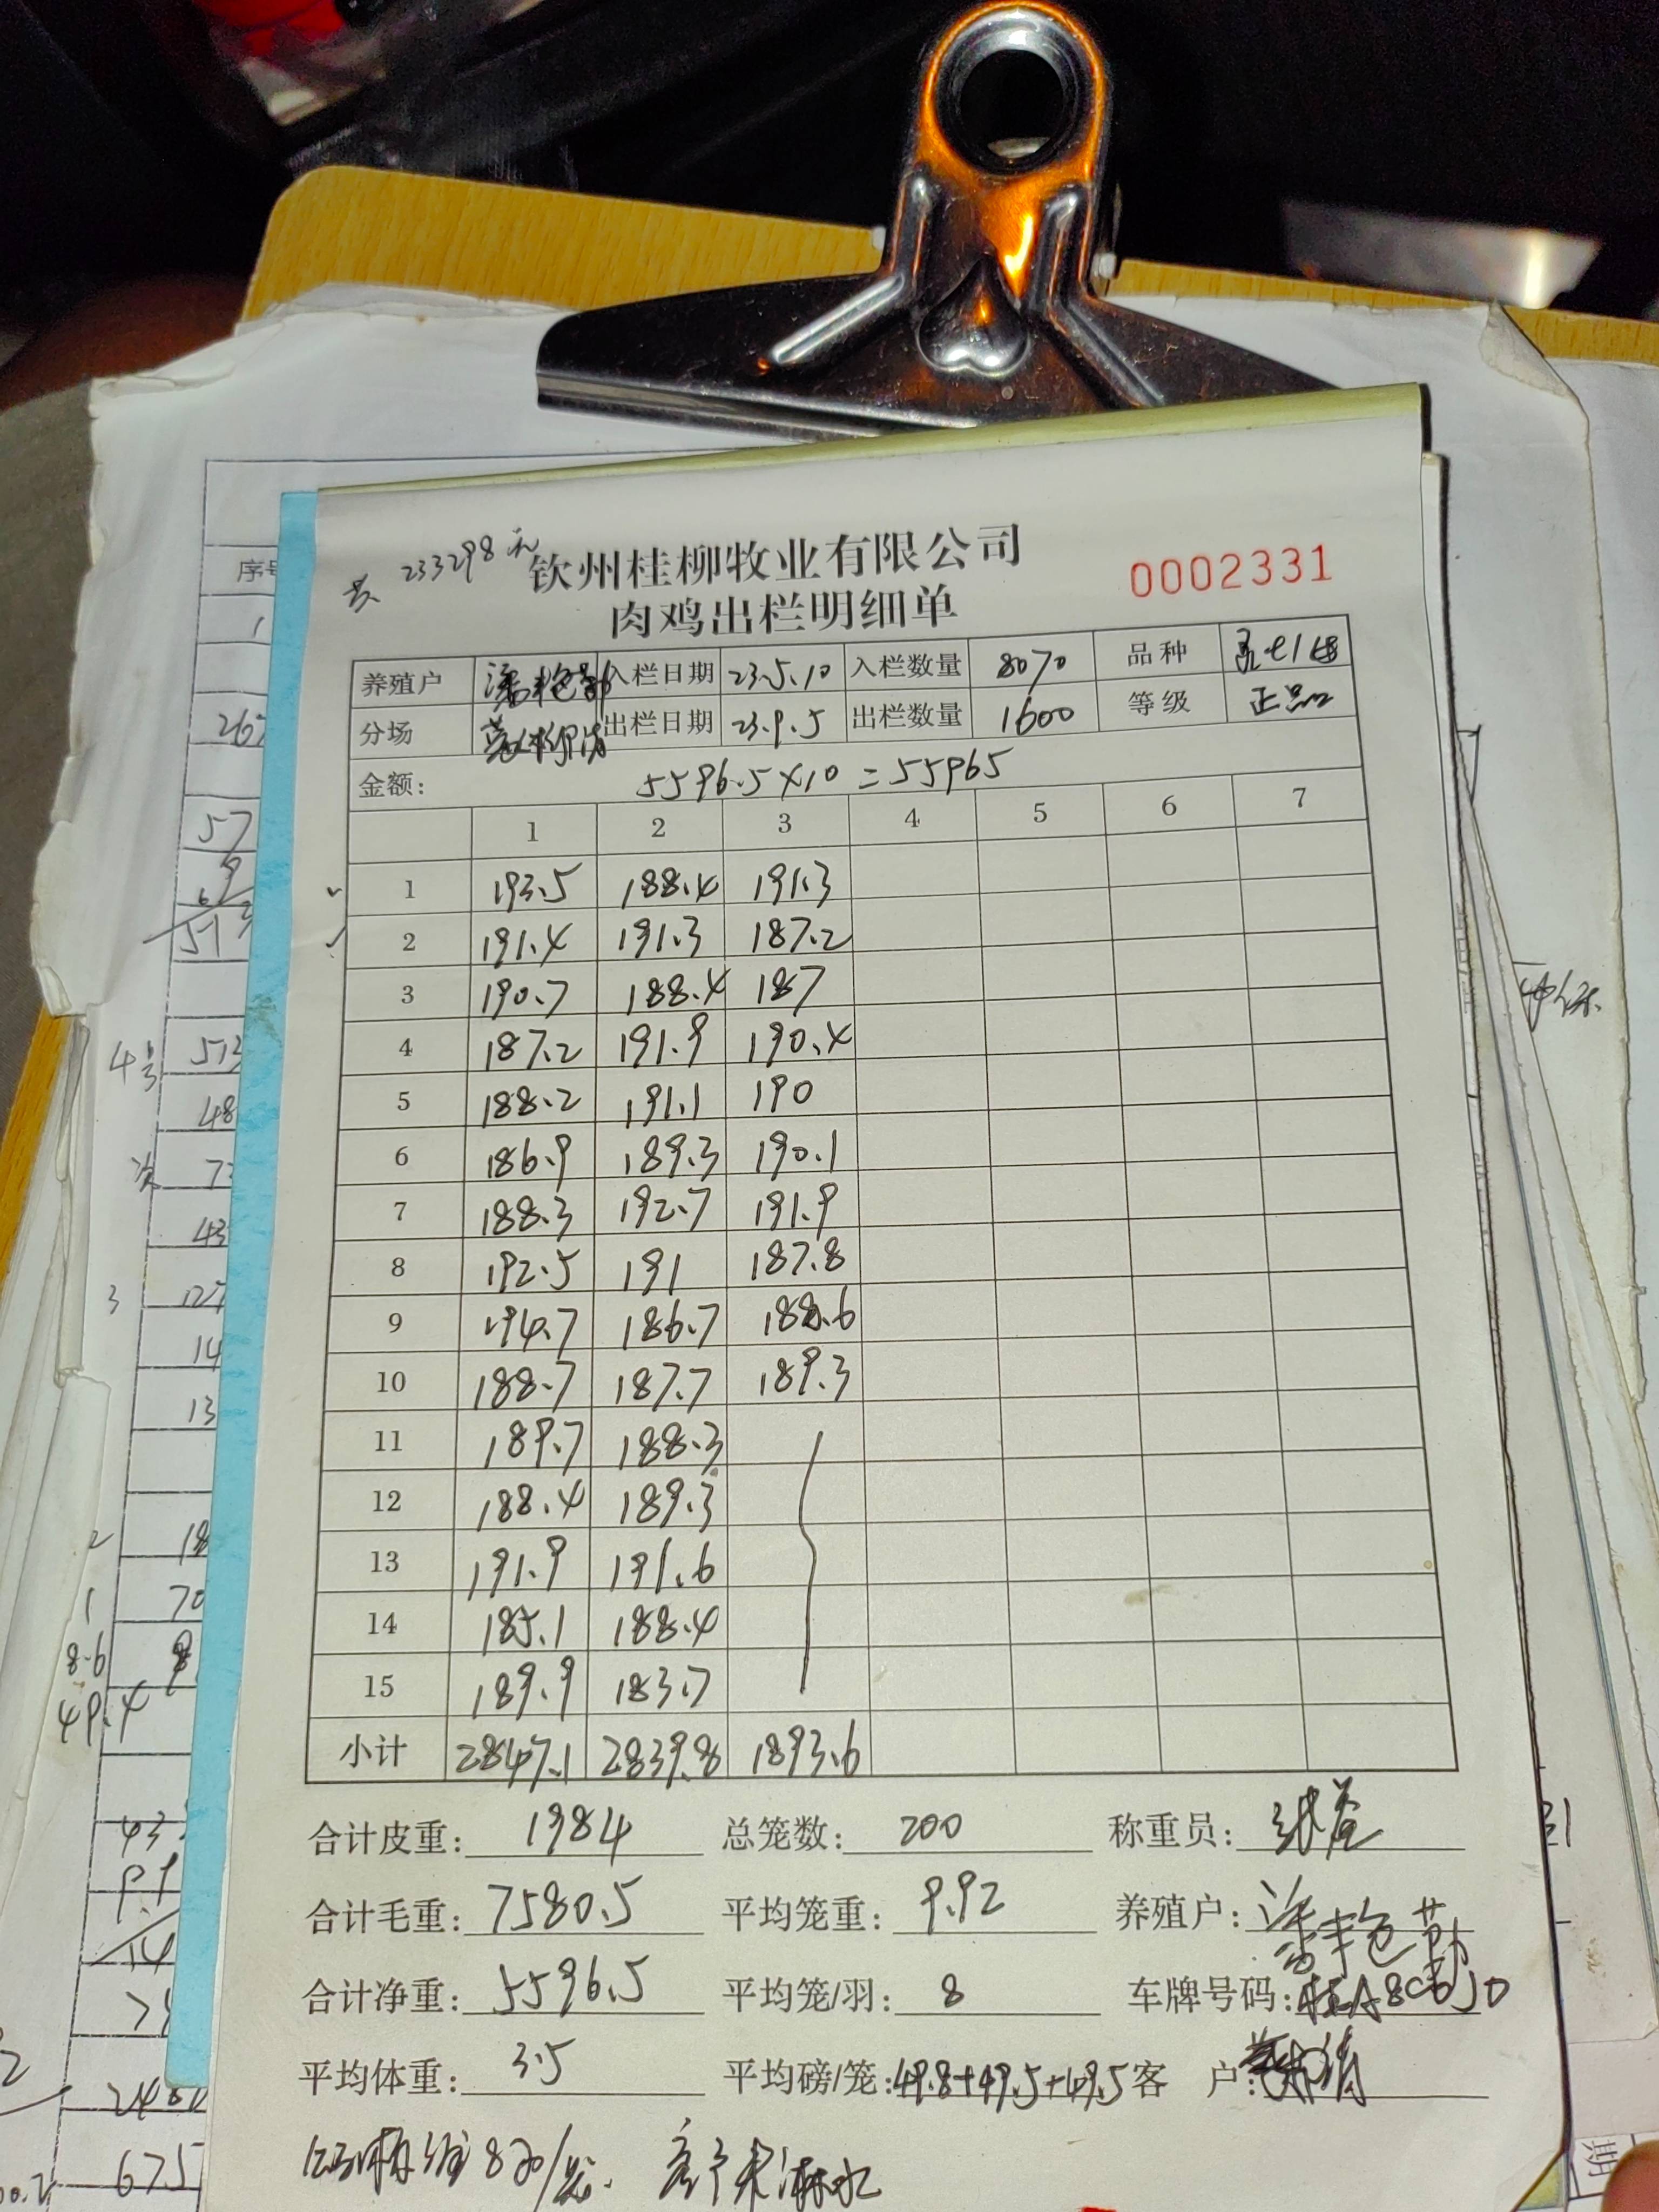 233298元
钦州桂柳牧业有限公司
0002331
肉鸡出栏明细单
养殖户 入栏日期 23.5.10 入栏数量 8070 品种
分场 出栏日期 23.9.5 出栏数量 1600 等级 正品
金额: 5596.5×10=55965
1 2 3 4 5 6 7
1 193.5 188.4 191.3
2 191.4 191.3 187.2
3 190.7 188.4 187
4 187.2 191.9 190.4
5 188.2 191.1 190
6 186.9 189.3 190.1
7 188.3 192.7 191.9
8 192.5 191 187.8
9 194.7 186.7 188.6
10 188.7 187.7 189.3
11 189.7 188.3
12 188.4 189.3
13 191.9 191.6
14 185.1 188.4
15 189.9 183.7
小计 2847.1 2839.8 1893.6
合计皮重: 1984 总笼数: 200 称重员:
合计毛重: 7580.5 平均笼重: 9.92 养殖户:
合计净重: 5596.5 平均笼/羽: 8 车牌号码:
平均体重: 3.5 平均磅/笼: 49.8+49.5+49.5 客户:
序号
1
267
57
4号 513
48
次
43
3 127
14
13
2 18
1 70
8.6
49.4
43
9.9
14
248
675
期